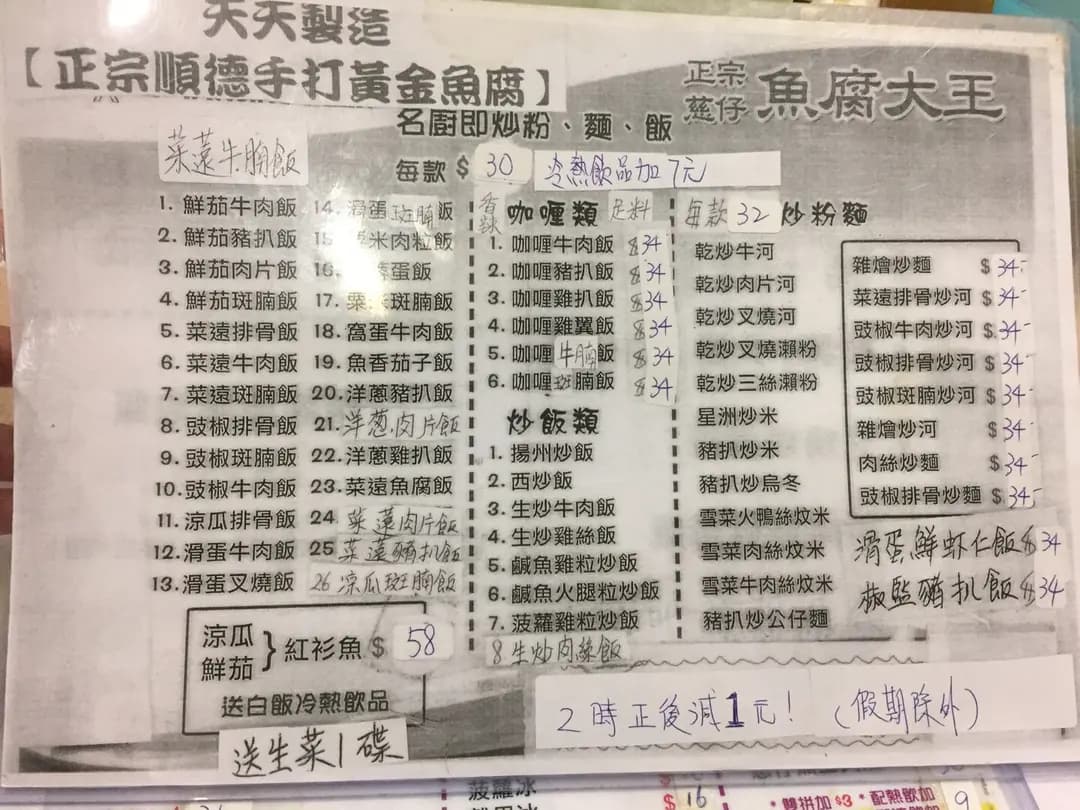 天天製造
【正宗順德手打黃金魚腐】
正宗
慈仔 魚腐大王
名廚即炒粉、麵、飯
菜薳牛腩飯
每款$ 30 冷熱飲品加7元
1. 鮮茄牛肉飯
2. 鮮茄豬扒飯
3. 鮮茄肉片飯
4. 鮮茄斑腩飯
5. 菜遠排骨飯
6. 菜遠牛肉飯
7. 菜遠斑腩飯
8. 豉椒排骨飯
9. 豉椒斑腩飯
10. 豉椒牛肉飯
11. 涼瓜排骨飯
12. 滑蛋牛肉飯
13. 滑蛋叉燒飯
14. 滑蛋斑腩飯
15. 米肉粒飯
16. 蛋飯
17. 菜斑腩飯
18. 窩蛋牛肉飯
19. 魚香茄子飯
20. 洋蔥豬扒飯
21. 洋葱肉片飯
22. 洋蔥雞扒飯
23. 菜遠魚腐飯
24 菜薳肉片飯
25 菜薳豬扒飯
26 凉瓜斑腩飯
涼瓜
鮮茄 }紅衫魚 $ 58
送白飯冷熱飲品
送生菜1碟
香辣 咖喱類 足料
1. 咖喱牛肉飯 $34
2. 咖喱豬扒飯 $34
3. 咖喱雞扒飯 $34
4. 咖喱雞翼飯 $34
5. 咖喱牛腩飯 $34
6. 咖喱斑腩飯 $34
炒飯類
1. 揚州炒飯
2. 西炒飯
3. 生炒牛肉飯
4. 生炒雞絲飯
5. 鹹魚雞粒炒飯
6. 鹹魚火腿粒炒飯
7. 菠蘿雞粒炒飯
8 生炒肉絲飯
每款 32 炒粉麵
乾炒牛河
乾炒肉片河
乾炒叉燒河
乾炒叉燒瀨粉
乾炒三絲瀨粉
星洲炒米
豬扒炒米
豬扒炒烏冬
雪菜火鴨絲炆米
雪菜肉絲炆米
雪菜牛肉絲炆米
豬扒炒公仔麵
雜燴炒麵 $34-
菜遠排骨炒河 $34-
豉椒牛肉炒河 $34-
豉椒排骨炒河 $34-
豉椒斑腩炒河 $34-
雜燴炒河 $34-
肉絲炒麵 $34-
豉椒排骨炒麵 $34-
滑蛋鮮虾仁飯$34
椒監豬扒飯$34
2時正後減1元! (假期除外)
菠蘿冰
$16
・雙拼加$3・配熱飲加